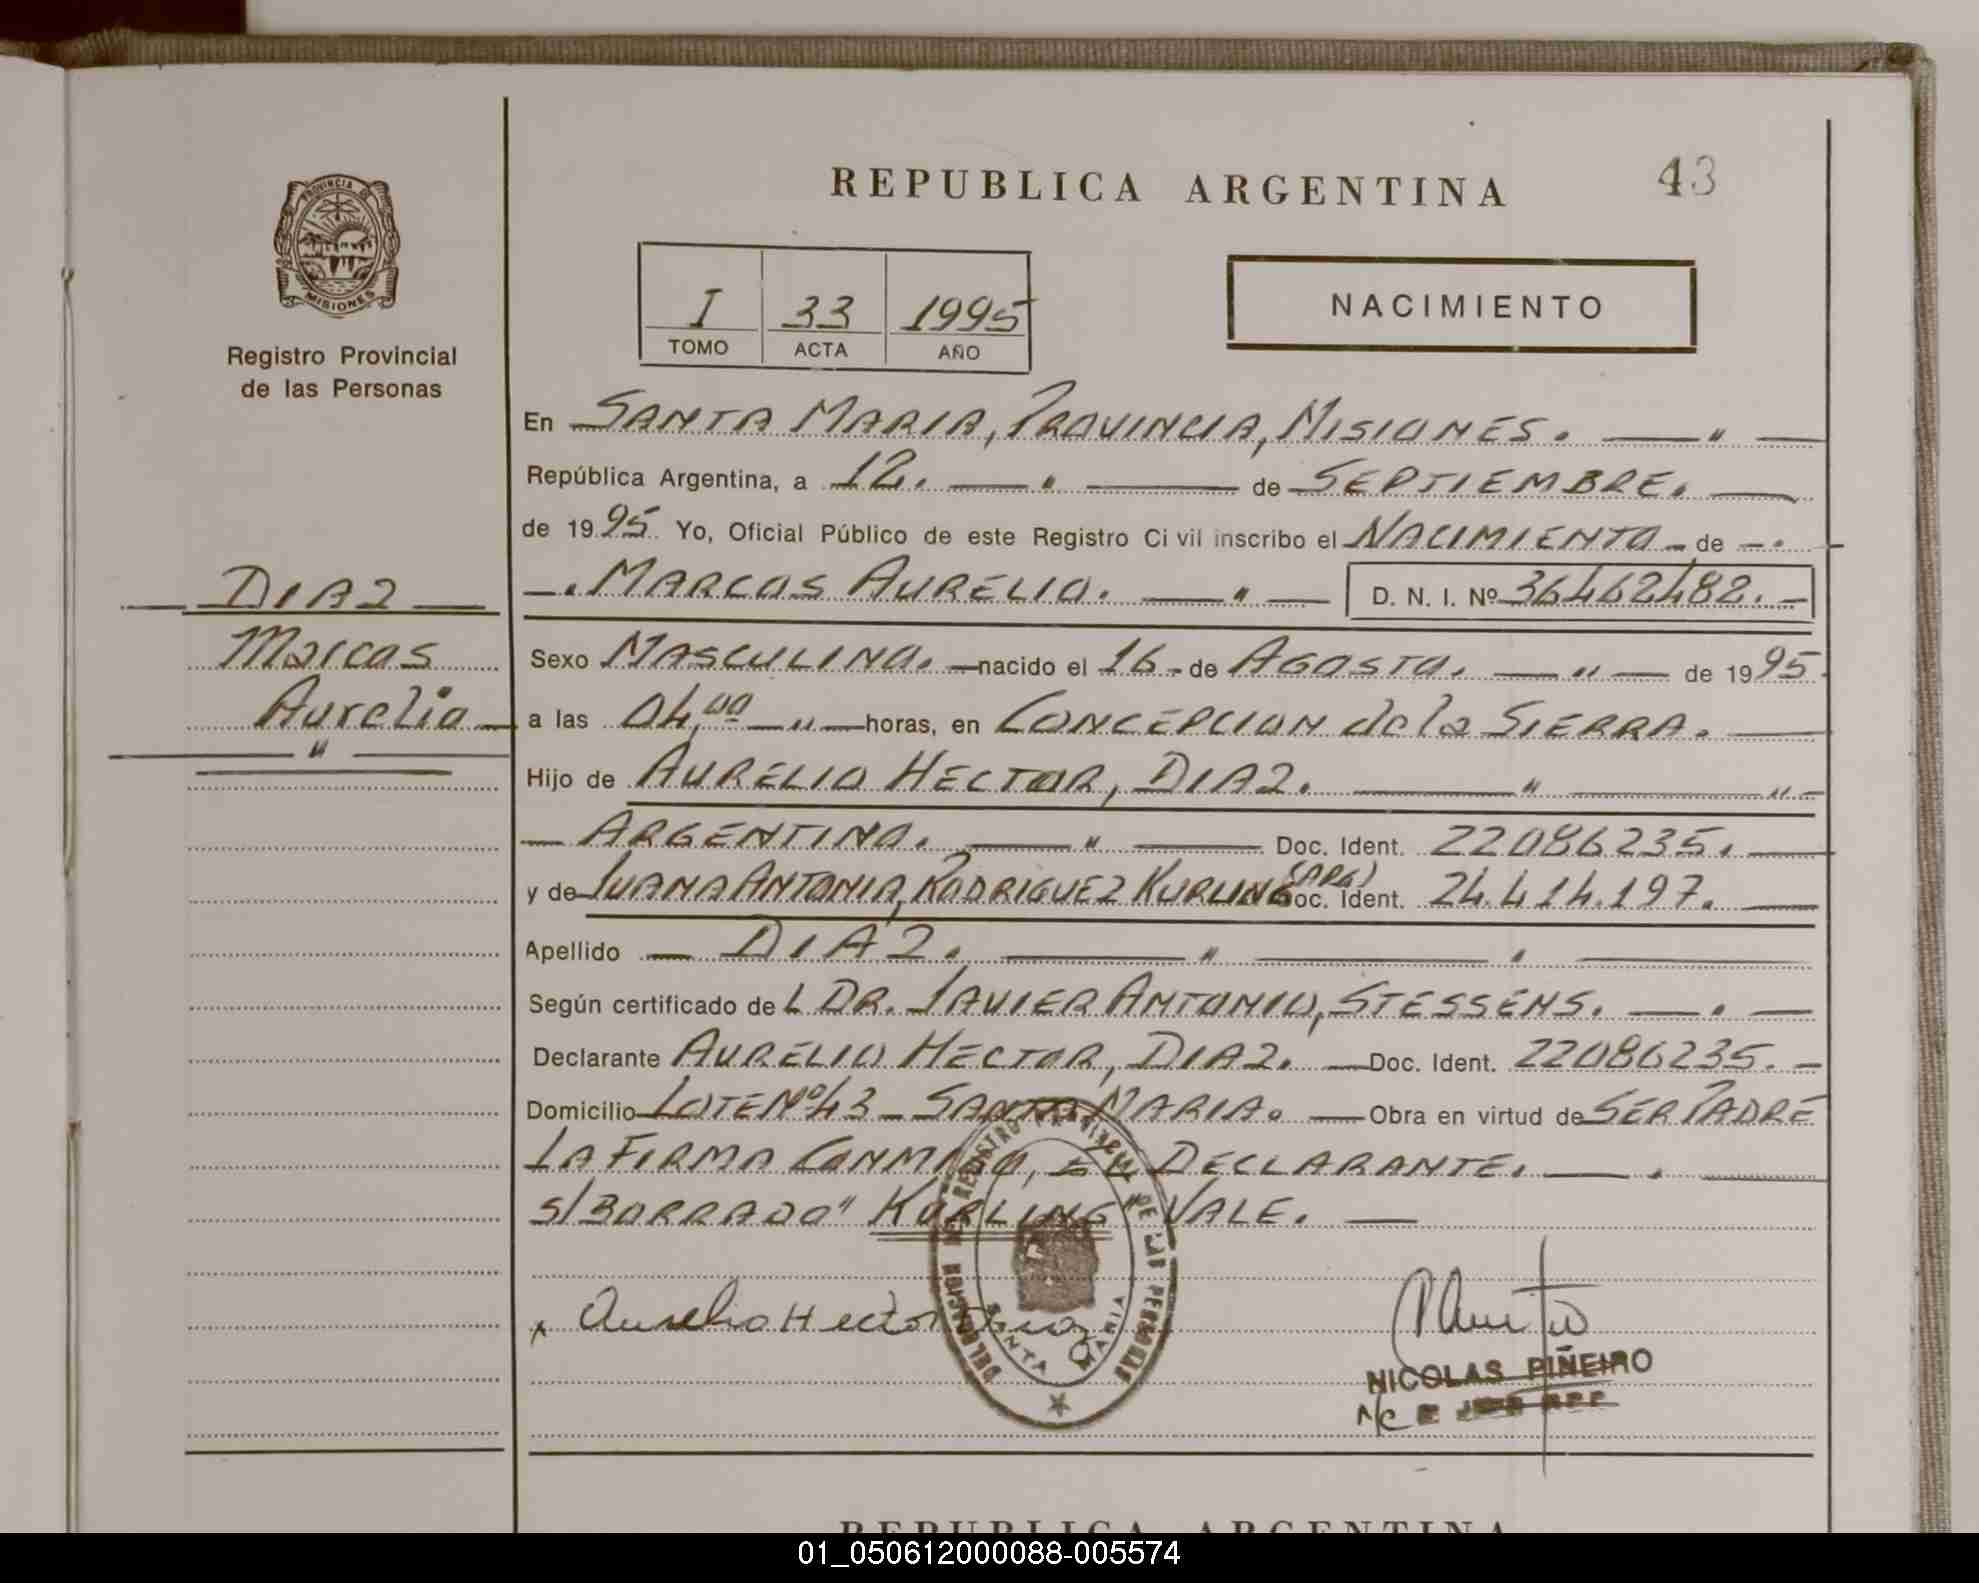 REPUBLICA ARGENTINA
43
PROVINCIA DE
MISIONES
Registro Provincial
de las Personas
I 33 1995
TOMO ACTA AÑO
NACIMIENTO
En SANTA MARIA, PROVINCIA, MISIONES. — " —
República Argentina, a 12. — " — de SEPTIEMBRE. —
de 1995. Yo, Oficial Público de este Registro Civil inscribo el NACIMIENTO - de - .
-. MARCOS AURELIO. — " — D. N. I. Nº 36462482. -
DIAZ
Marcos
Aurelio —
— " —
Sexo MASCULINO. — nacido el 16 - de AGOSTO. — " — de 1995.
a las 04,00 — " — horas, en CONCEPCION de la SIERRA. —
Hijo de AURELIO HECTOR, DIAZ. — " — " —
— ARGENTINO. — " — Doc. Ident. 22086235. —
y de JUANA ANTONIA, RODRIGUEZ KURLING (ARG) Doc. Ident. 24.414.197. —
Apellido — DIAZ. — " — " —
Según certificado de L DR. JAVIER ANTONIO, STESSENS. — . —
Declarante AURELIO HECTOR, DIAZ. — Doc. Ident. 22086235. -
Domicilio LOTE Nº 43 - SANTA MARIA. — Obra en virtud de SER PADRE
LA FIRMA CONMIGO, EL DECLARANTE. — . —
S/BORRADO" KURLING" VALE. —
x Aurelio Hector Diaz
DELEGACION DEL REGISTRO PROVINCIAL DE LAS PERSONAS
SANTA MARIA
NICOLAS PIÑEIRO
REPUBLICA ARGENTINA
01_050612000088-005574